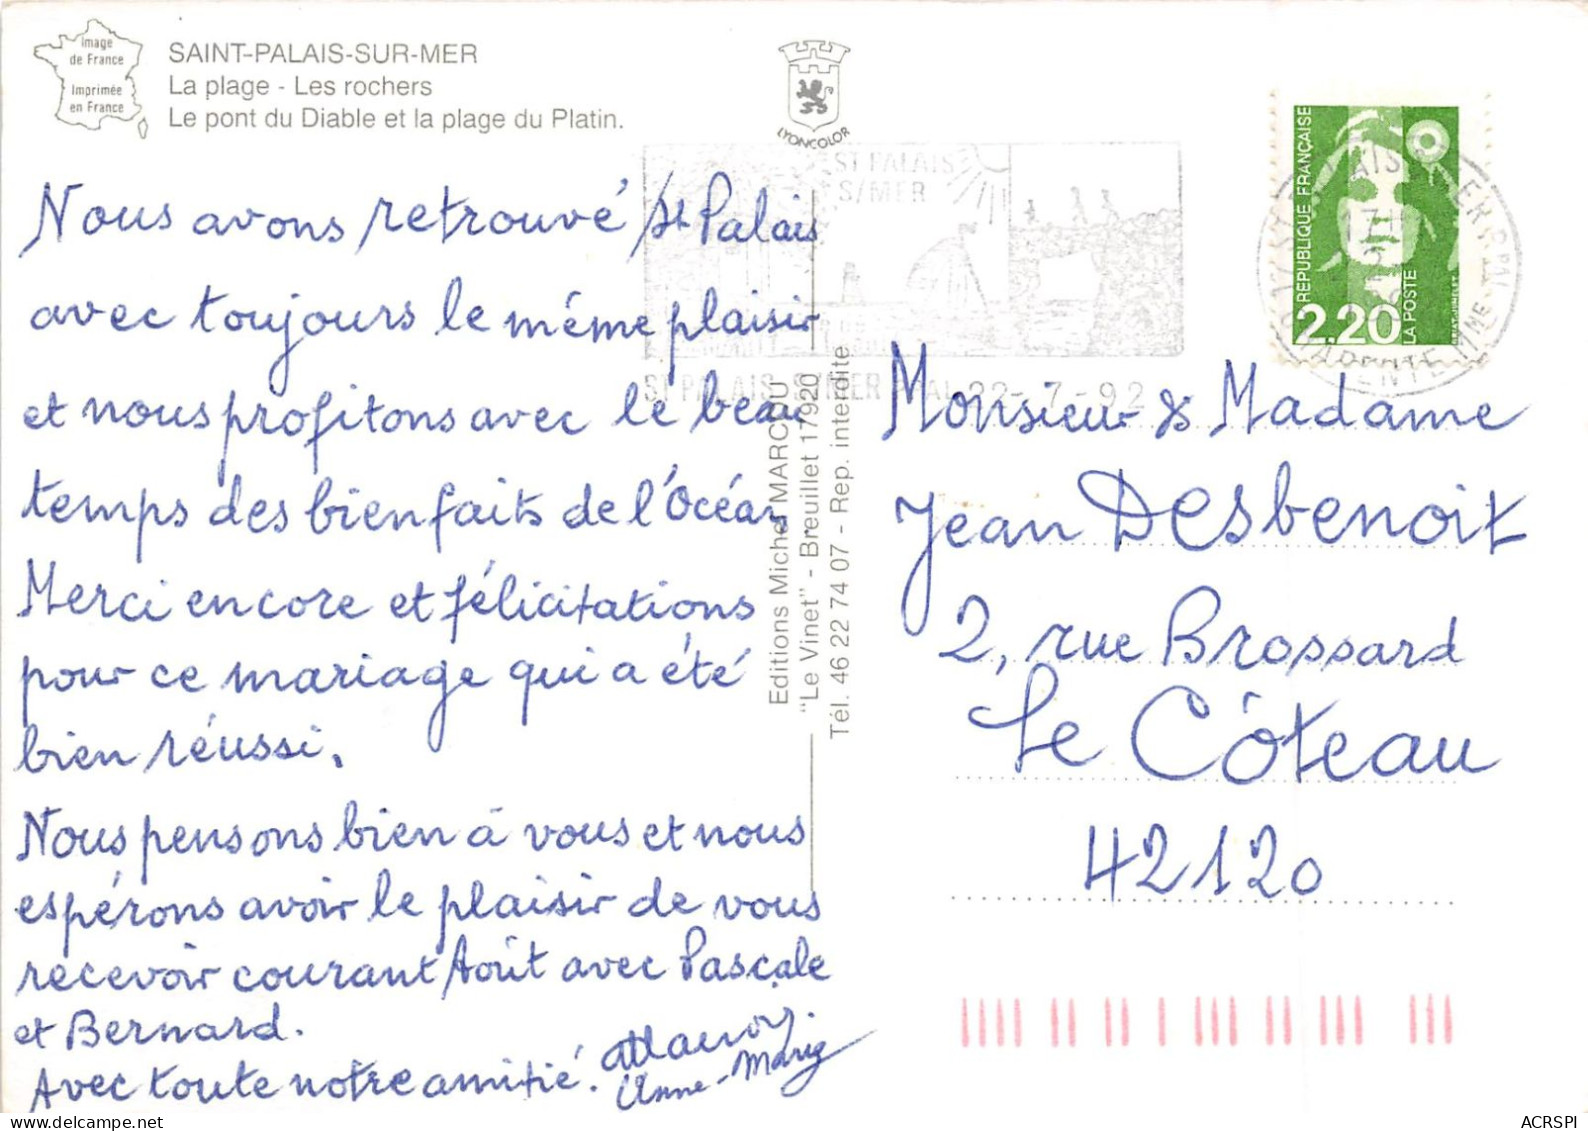 Image
de France
Imprimée
en France
SAINT-PALAIS-SUR-MER
La plage - Les rochers
Le pont du Diable et la plage du Platin.
LYONCOLOR
ST PALAIS
S/MER
ST PALAIS S/MER PPAL 22-7-92
REPUBLIQUE FRANÇAISE
LA POSTE
2.20
Nous avons retrouvé St Palais
avec toujours le même plaisir
et nous profitons avec le beau
temps des bienfaits de l'Océan
Merci encore et félicitations
pour ce mariage qui a été
bien réussi.
Nous pensons bien à vous et nous
espérons avoir le plaisir de vous
recevoir courant Août avec Pascale
et Bernard.
Avec toute notre amitié.
Anne-Marie
Editions Michel MARCOU
"Le Vinet" - Breuillet 17920
Tél. 46 22 74 07 - Rep. interdite
Monsieur & Madame
Jean Desbenoit
2, rue Brossard
Le Côteau
42120
ACRSPI